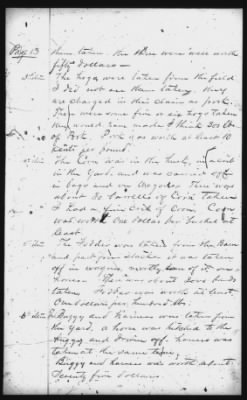 Page 13
them taken. the three were were worth
fifty dollars —
3d Item The hogs were taken from the field
I did not see them taken, they
are charged in this claim as pork.
There were some five or six hogs taken
they would have made I think 300 lbs
of Pork. Pork was worth at least 10
cents per pound.
4th Item The Corn was in the husk, in
the Yard. and was carried off
in bags and on There was
about 30 barrells of Corn taken
I had a of Corn. Corn
was worth One dollar per bushel at
least.
5 Item The Fodder was taken from the Barn
and part from stacks it was taken
off in wagons, on
horses. There was about
taken. Fodder was worth at least,
One dollar per hundred lbs.
6 Item Buggy and harness was taken from
the yard. a horse was hitched to the
Buggy and driven off. harness was
taken at the same time,
Buggy and harness was worth about
Seventy five dollars